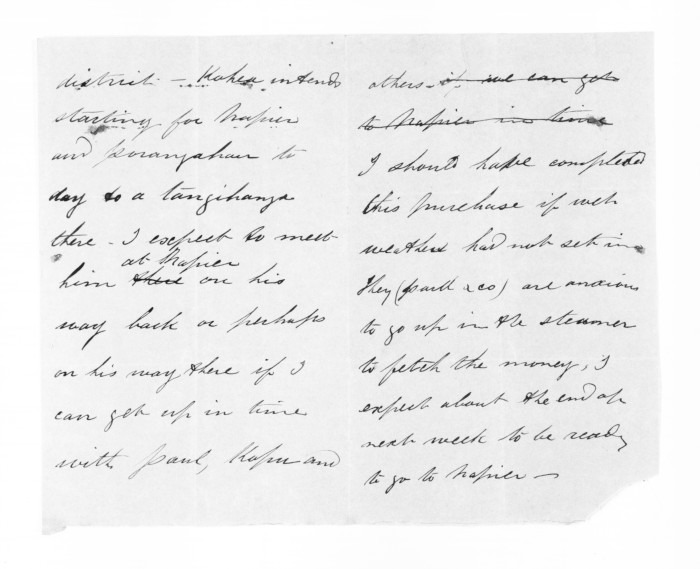 district - Kahea intends
starting for Napier
and Porangahau to
day to a tangihanga
there - I expect to meet
at Napier
him there on his
way back or perhaps
on his way there if I
can get up in time
with Paul, Kopu and
others - if we can get
to Napier in time
I should have completed
this purchase if wet
weather had not set in
They (Paul & co) are anxious
to go up in the steamer
to fetch the money, I
expect about the end of
next week to be ready
to go to Napier -